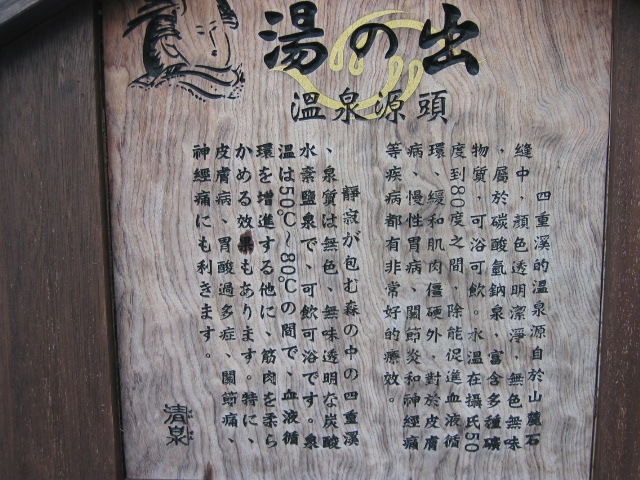 湯の出
溫泉源頭
四重溪的溫泉源自於山麓石
縫中，顏色透明潔淨，無色無味
，屬於碳酸氫鈉泉，富含多種礦
物質，可浴可飲。水溫在攝氏50
度到80度之間，除能促進血液循
環、緩和肌肉僵硬外，對於皮膚
病、慢性胃病、關節炎和神經痛
等疾病都有非常好的療效。
靜寂が包む森の中の四重溪
、泉質は無色、無味透明な炭酸
水素鹽泉で、可飲可浴です。泉
溫は50℃～80℃の間で、血液循
環を增進する他に、筋肉を柔ら
かめる效果もあります。特に、
皮膚病、胃酸過多症、關節痛、
神經痛にも利きます。
清泉